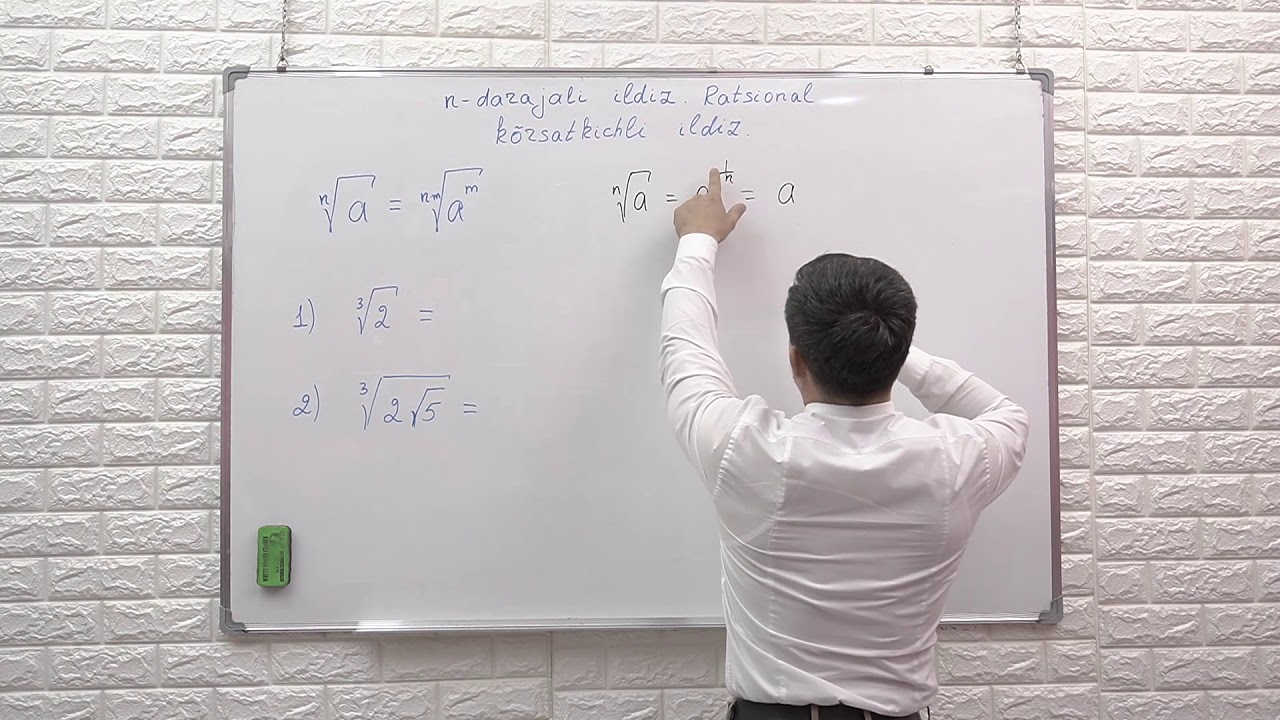 n-darajali ildiz. Ratsional
kõrsatkichli ildiz.
ⁿ√a = ⁿᵐ√aᵐ
ⁿ√a = a^1/n = a
1) ³√2 =
2) ³√(2√5) =